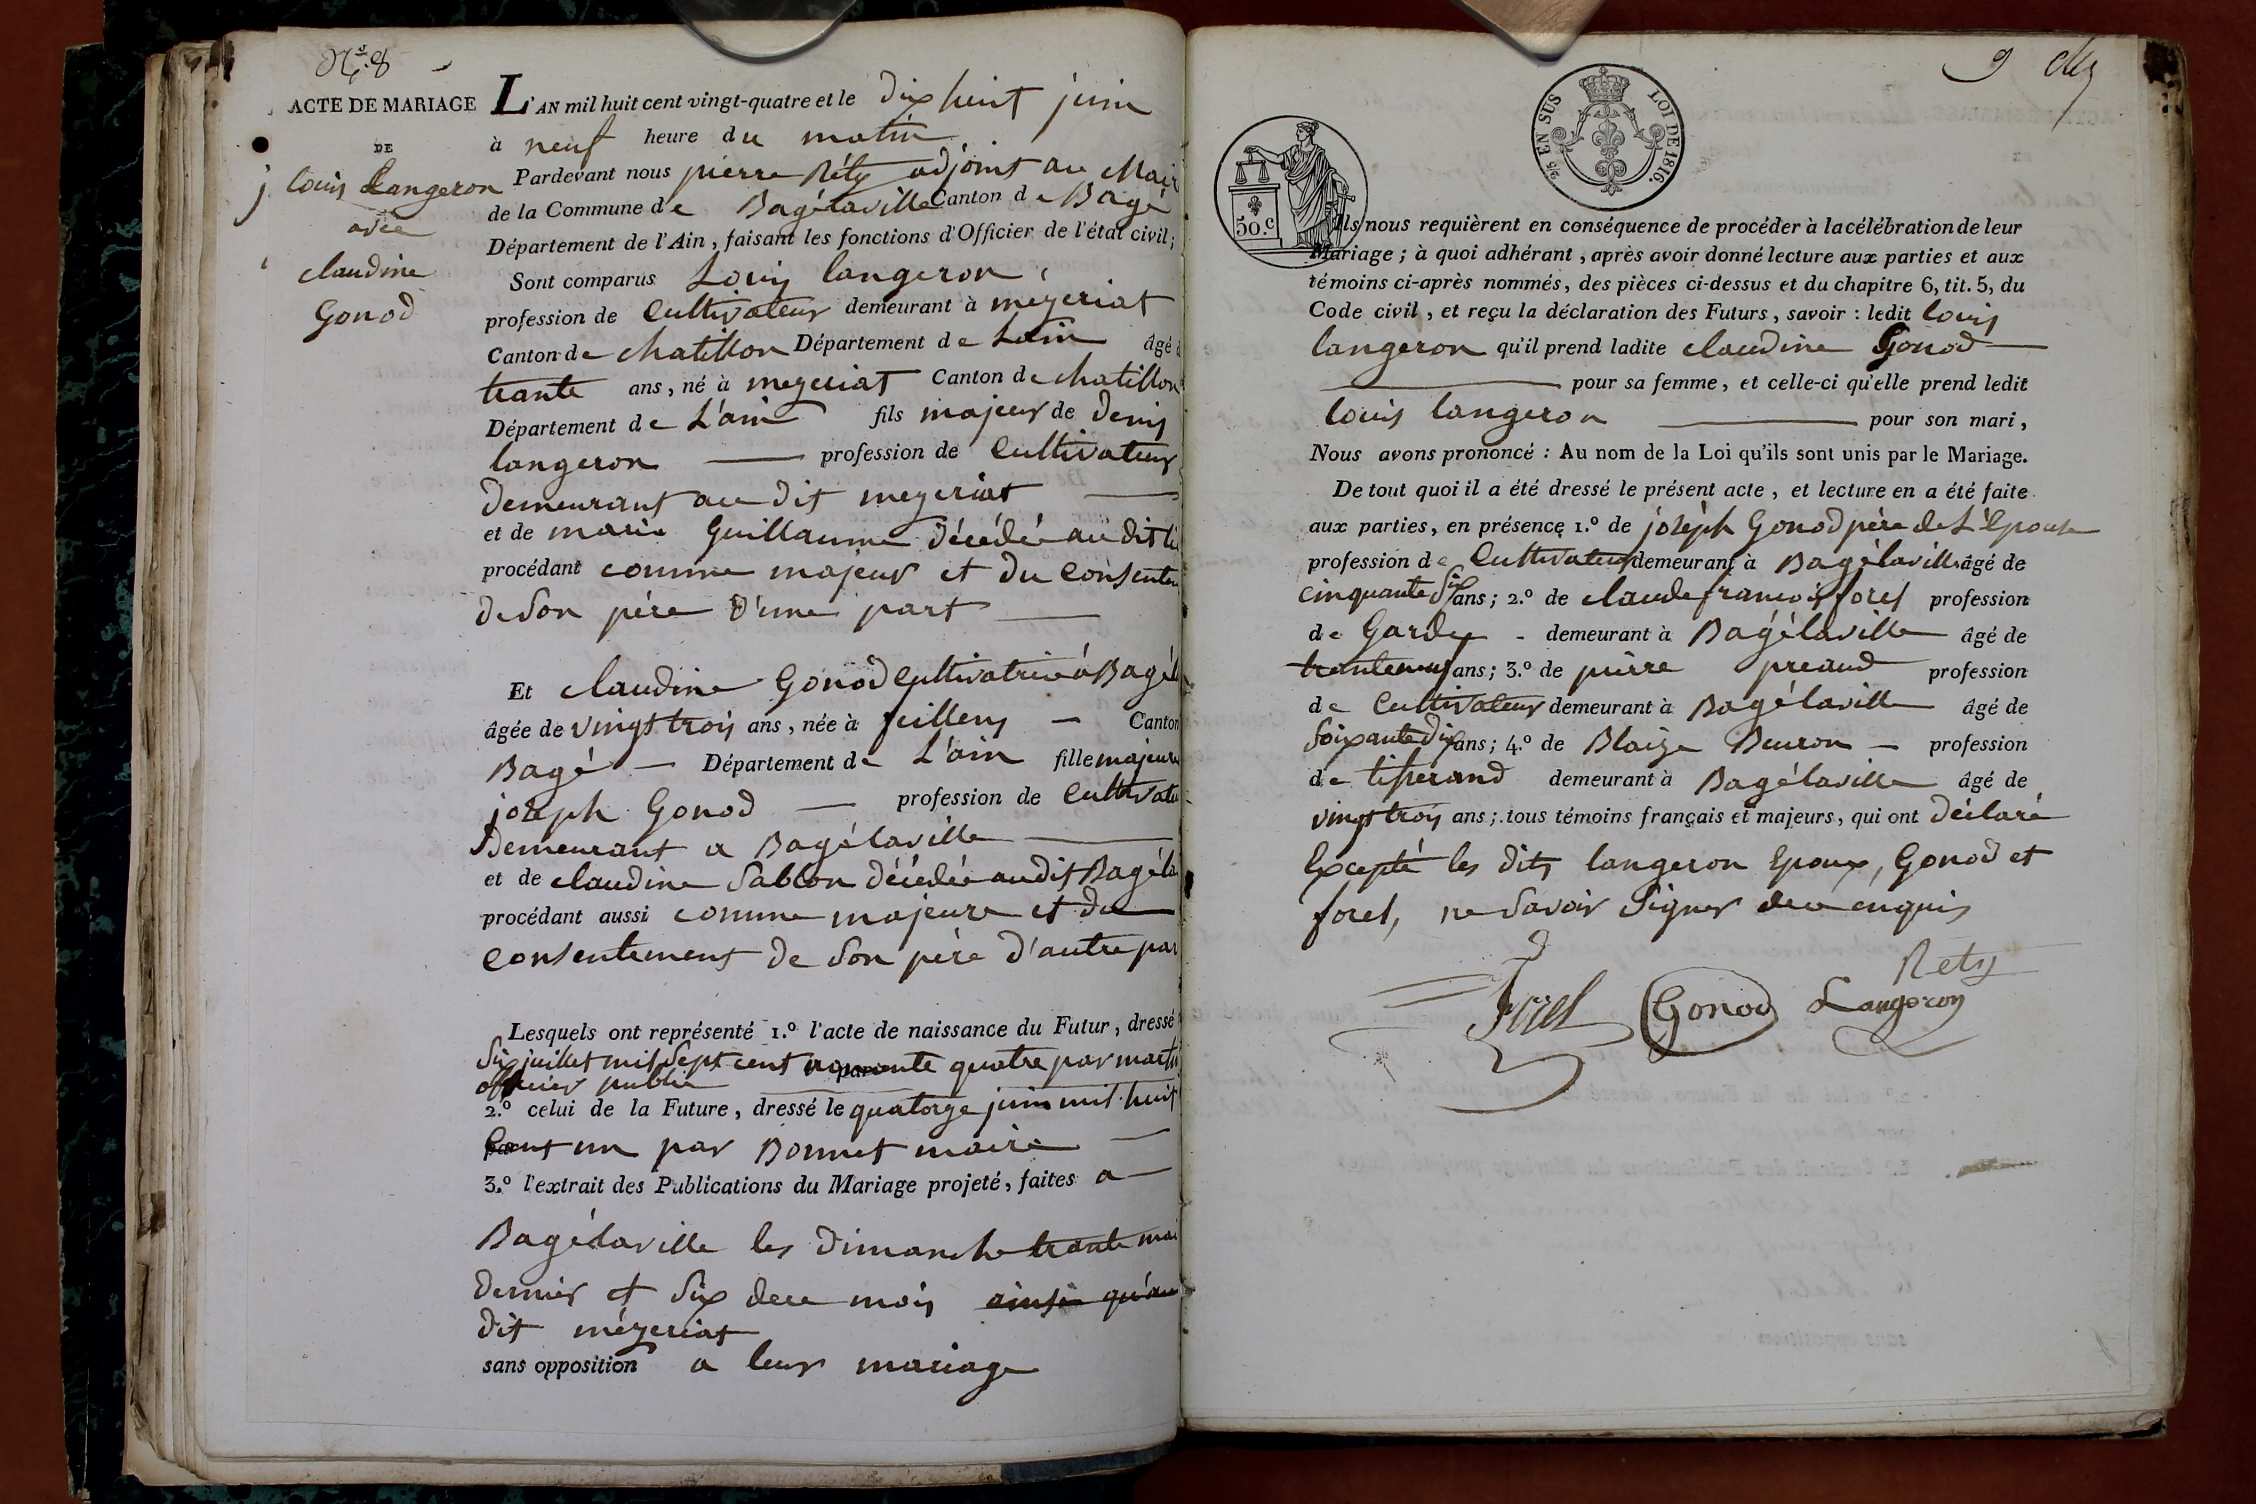 N.º 8
ACTE DE MARIAGE
DE
Louis Langeron
avec
claudine
Gonod
L'AN mil huit cent vingt-quatre et le dix huit juin
à neuf heure du matin
Pardevant nous pierre Réty adjoint au Maire
de la Commune de Bagélaville Canton de Bagé
Département de l'Ain, faisant les fonctions d'Officier de l'état civil;
Sont comparus Louis langeron,
profession de Cultivateur demeurant à mézeriat
Canton de chatillon Département de Lain âgé d
trante ans, né à mezeriat Canton de chatillon
Département de L'ain fils majeur de Denis
langeron profession de Cultivateur
demeurant au dit mezeriat
et de marie Guillaume décédée au dit li
procédant comme majeur et du Consentem
de Son père d'une part
Et claudine Gonod Cultivatrice à Bagéla
âgée de vingt trois ans, née à feillens Canton
Bagé Département de L'ain fille majeure
joseph Gonod profession de Cultivate
Demeurant a Bagélaville
et de claudine Sablon décédée au dit Bagéla
procédant aussi comme majeure et du
Consentement de Son père d'autre par
Lesquels ont représenté 1.º l'acte de naissance du Futur, dressé
Six juillet mil Sept cent nonante quatre par martin
officier public
2.º celui de la Future, dressé le quatorze juin mil huit
Cent un par Bonnet maire
3.º l'extrait des Publications du Mariage projeté, faites a
Bagélaville les dimanche trante mai
dernier et Six de ce mois ainsi qu'au
dit mézeriat
sans opposition a leur mariage
9
2/5 EN SUS LOI DE 1816.
50.c
Ils nous requièrent en conséquence de procéder à la célébration de leur
Mariage; à quoi adhérant, après avoir donné lecture aux parties et aux
témoins ci-après nommés, des pièces ci-dessus et du chapitre 6, tit. 5, du
Code civil, et reçu la déclaration des Futurs, savoir: ledit Louis
langeron qu'il prend ladite claudine Gonod
pour sa femme, et celle-ci qu'elle prend ledit
Louis langeron pour son mari,
Nous avons prononcé: Au nom de la Loi qu'ils sont unis par le Mariage.
De tout quoi il a été dressé le présent acte, et lecture en a été faite
aux parties, en présence 1.º de joseph Gonod père de L'Epouse
profession de Cultivateur demeurant à Bagélaville âgé de
cinquante Six ans; 2.º de claude francois forel profession
de Garde demeurant à Bagélaville âgé de
trante neuf ans; 3.º de pierre preaud profession
de Cultivateur demeurant à Bagélaville âgé de
Soixante dix ans; 4.º de Blaize Beuron profession
de tisserand demeurant à Bagélaville âgé de
vingt trois ans; tous témoins français et majeurs, qui ont déclaré
Excepté les dits langeron Epoux, Gonod et
forel, ne Savoir Signer de ce enquis
Rety
Forel Gonod Langeron